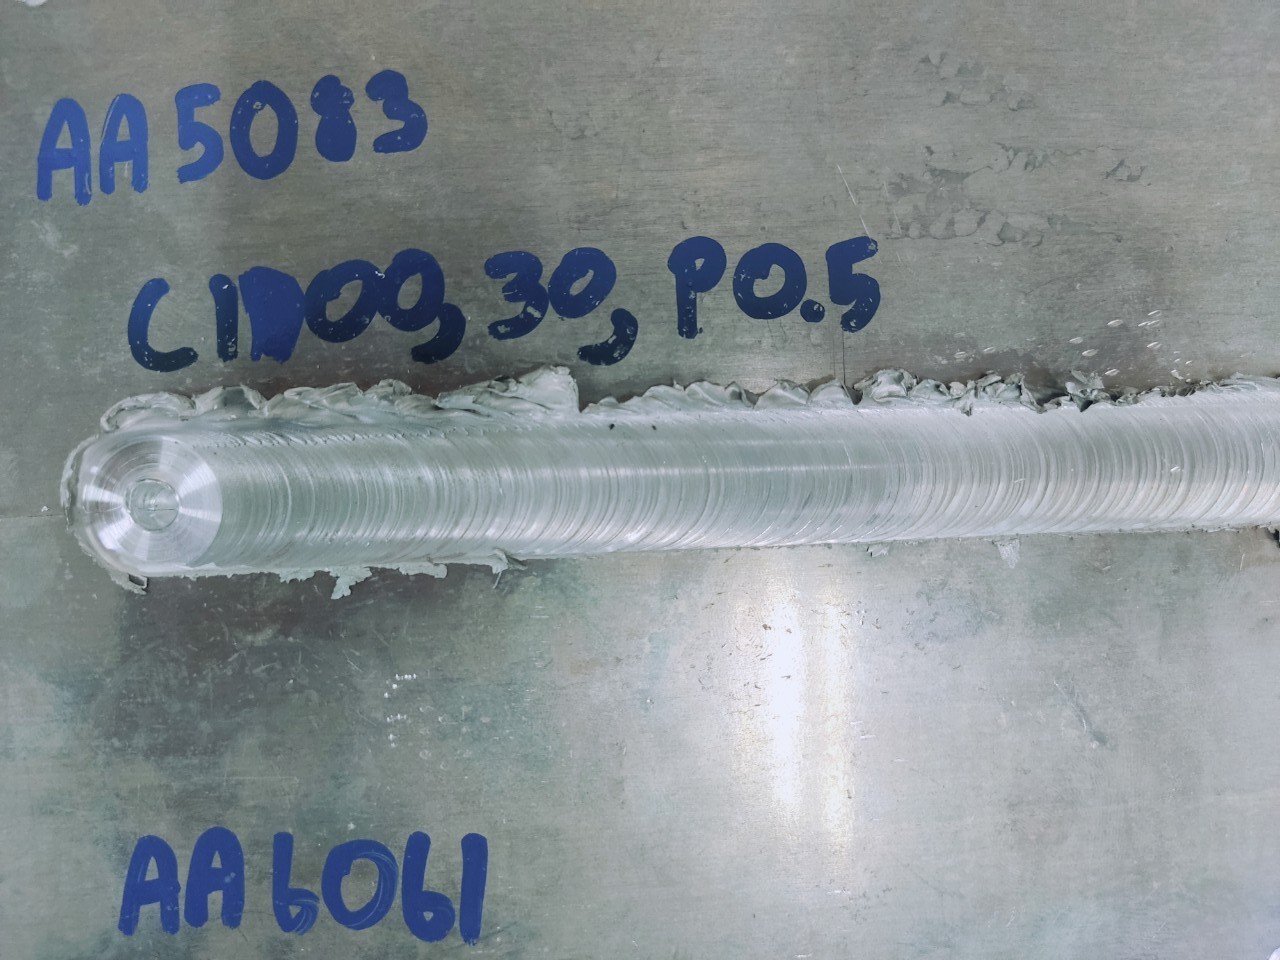 AA 5083
C1000, 30, P0.5
AA 6061